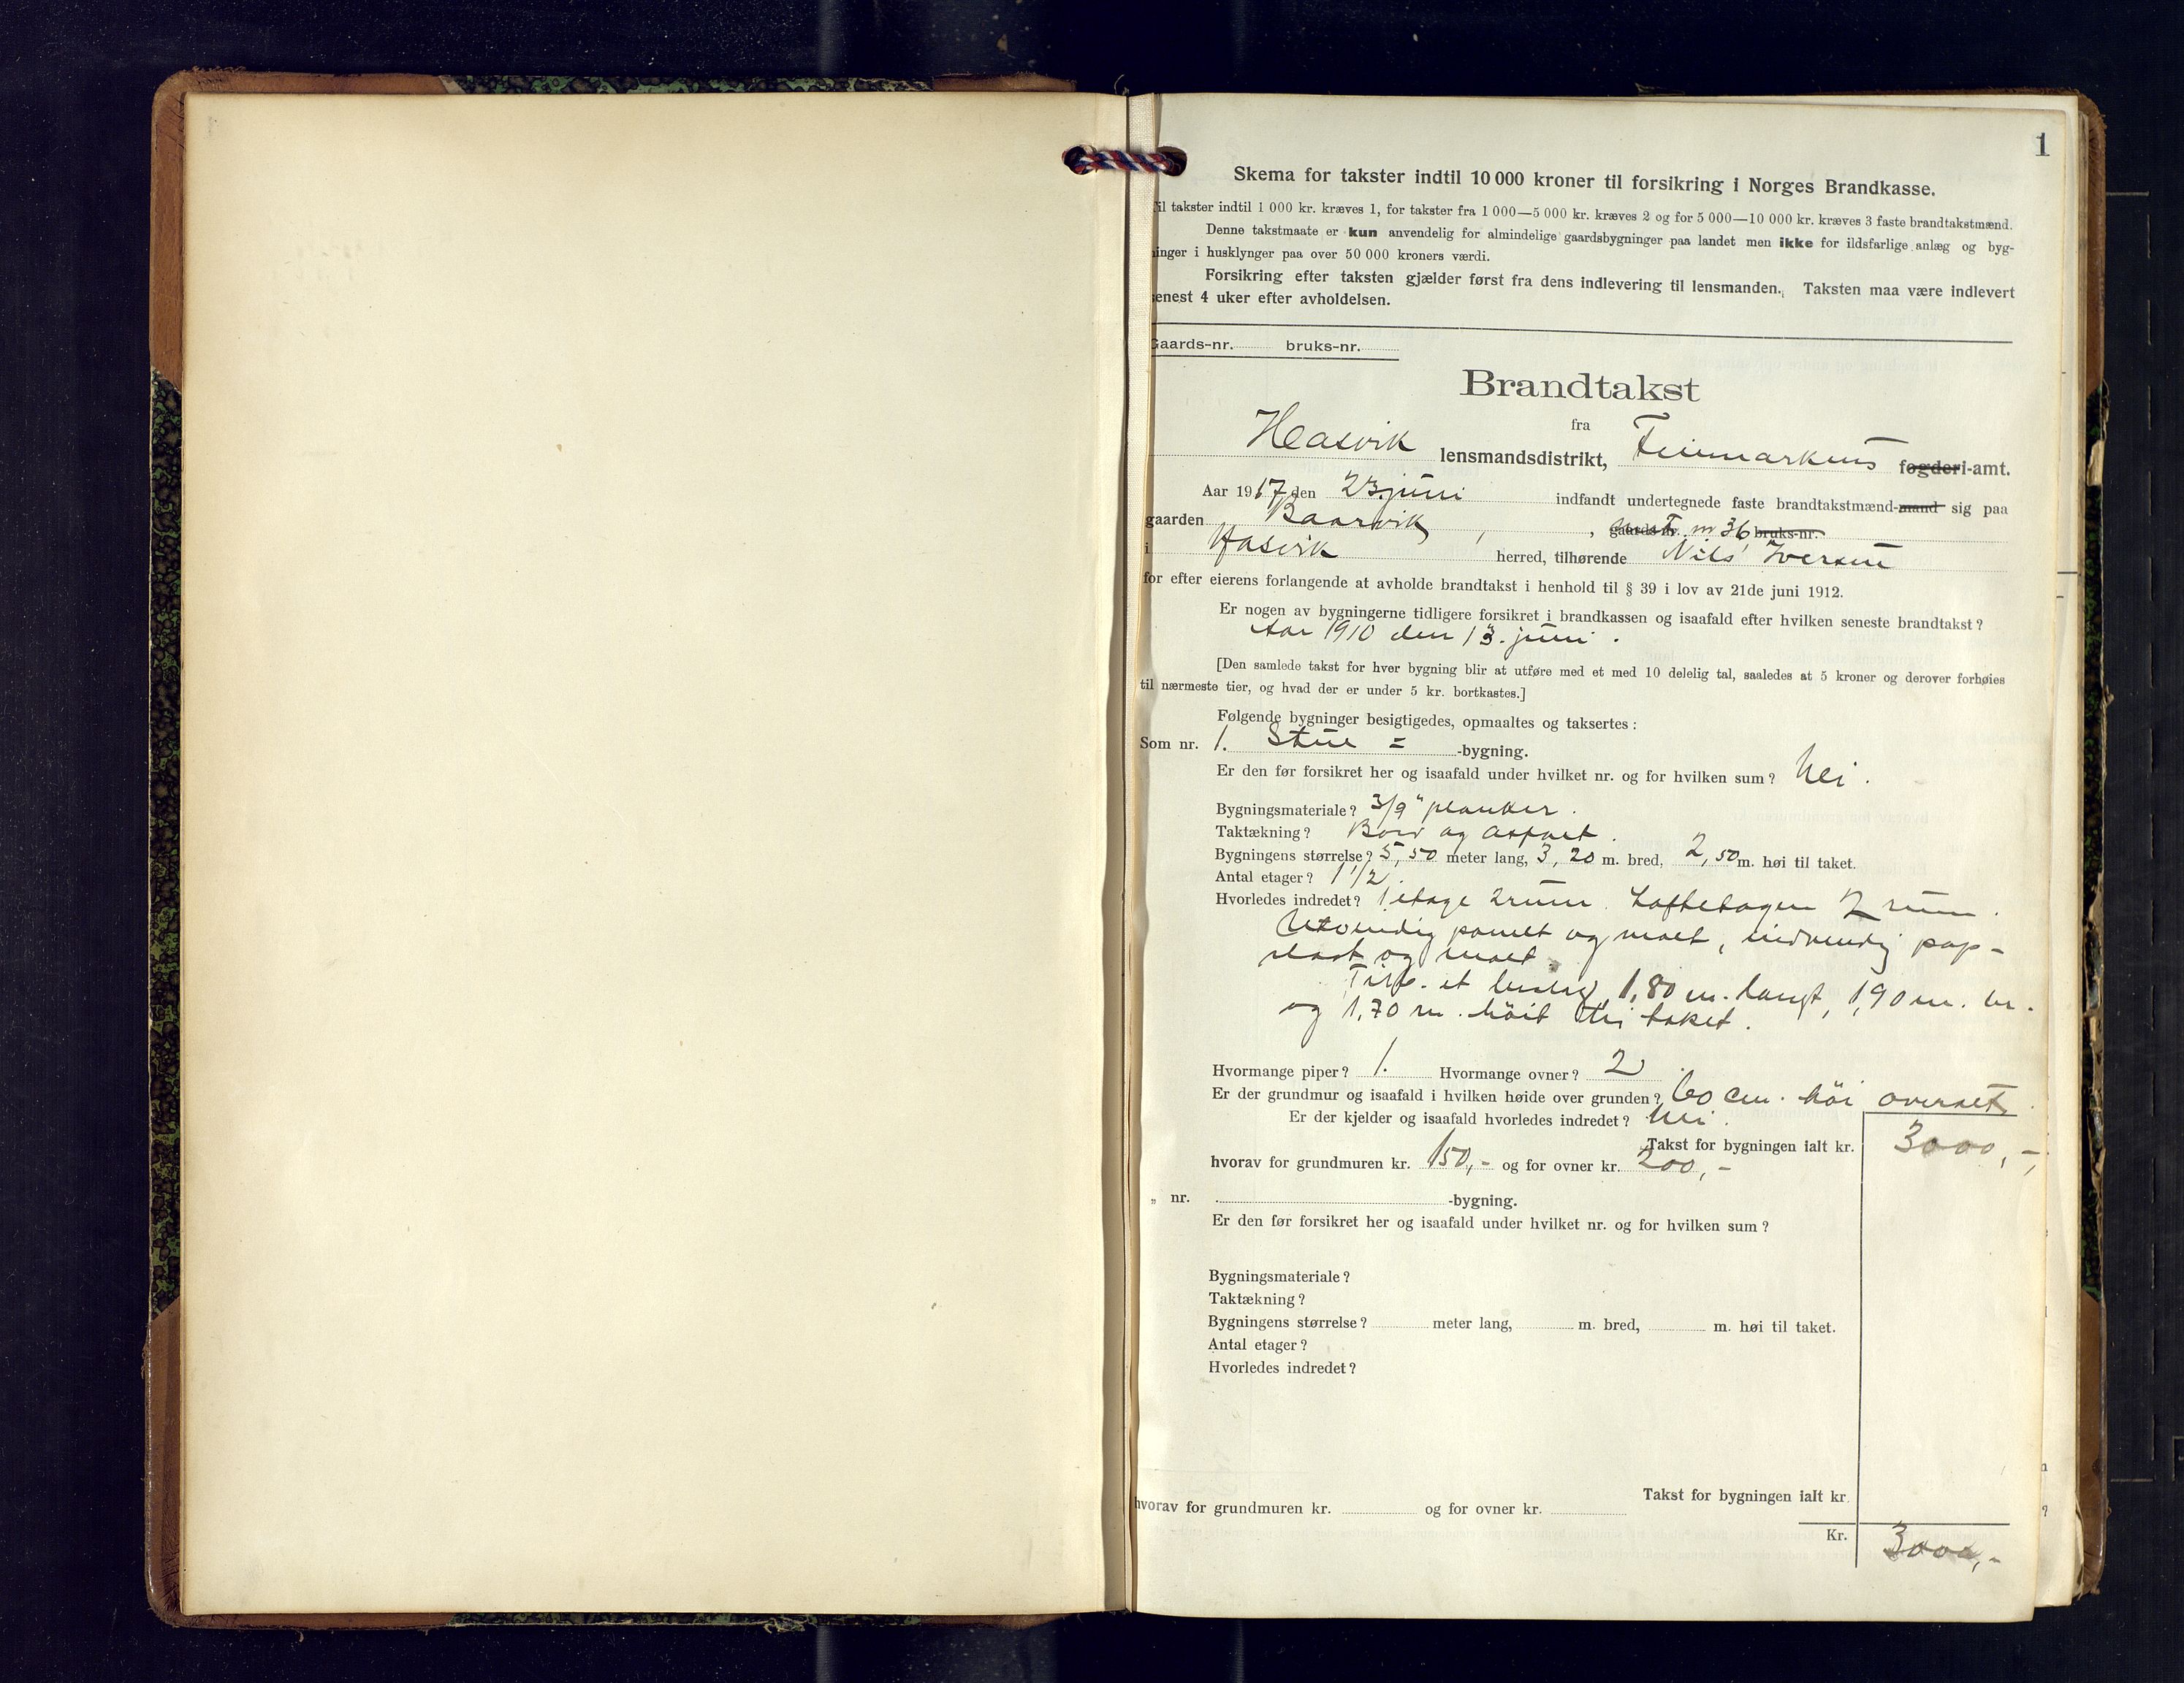 1
Skema for takster indtil 10 000 kroner til forsikring i Norges Brandkasse.
Til takster indtil 1 000 kr. kræves 1, for takster fra 1 000—5 000 kr. kræves 2 og for 5 000—10 000 kr. kræves 3 faste brandtakstmænd.
Denne takstmaate er kun anvendelig for almindelige gaardsbygninger paa landet men ikke for ildsfarlige anlæg og byg-
ninger i husklynger paa over 50 000 kroners værdi.
Forsikring efter taksten gjælder først fra dens indlevering til lensmanden. Taksten maa være indlevert
senest 4 uker efter avholdelsen.
Gaards-nr. bruks-nr.
Brandtakst
fra
Hasvik lensmandsdistrikt, Finmarkens fogderi-amt.
Aar 1917 den 23. juni indfandt undertegnede faste brandtakstmænd-mand sig paa
gaarden Baarvik, , gaards-nr. 36 bruks-nr.
i Hasvik herred, tilhørende Nils Iversen
for efter eierens forlangende at avholde brandtakst i henhold til § 39 i lov av 21de juni 1912.
Er nogen av bygningerne tidligere forsikret i brandkassen og isaafald efter hvilken seneste brandtakst?
Aar 1910 den 13. juni.
[Den samlede takst for hver bygning blir at utføre med et med 10 delelig tal, saaledes at 5 kroner og derover forhøies
til nærmeste tier, og hvad der er under 5 kr. bortkastes.]
Følgende bygninger besigtigedes, opmaaltes og taksertes:
Som nr. 1. Stue = -bygning.
Er den før forsikret her og isaafald under hvilket nr. og for hvilken sum? Nei.
Bygningsmateriale? 3/9" planker.
Taktækning? Bord og asfalt.
Bygningens størrelse? 5,50 meter lang, 3,20 m. bred, 2,50 m. høi til taket.
Antal etager? 1 1/2.
Hvorledes indredet? 1 etage 2 rum. Loftetagen 2 rum.
Utvendig panelt og malt, indvendig pap-
slaat og malt.
et bislag 1,80 m. langt, 1,90 m. br.
og 1,70 m. høit til taket.
Hvormange piper? 1. Hvormange ovner? 2
Er der grundmur og isaafald i hvilken høide over grunden? 60 cm. høi
Er der kjelder og isaafald hvorledes indredet? Nei.
Takst for bygningen ialt kr. 3000,-
hvorav for grundmuren kr. 150,- og for ovner kr. 200,-
„ nr. -bygning.
Er den før forsikret her og isaafald under hvilket nr. og for hvilken sum?
Bygningsmateriale?
Taktækning?
Bygningens størrelse? meter lang, m. bred, m. høi til taket.
Antal etager?
Hvorledes indredet?
Takst for bygningen ialt kr.
hvorav for grundmuren kr. og for ovner kr.
Kr. 3000,-